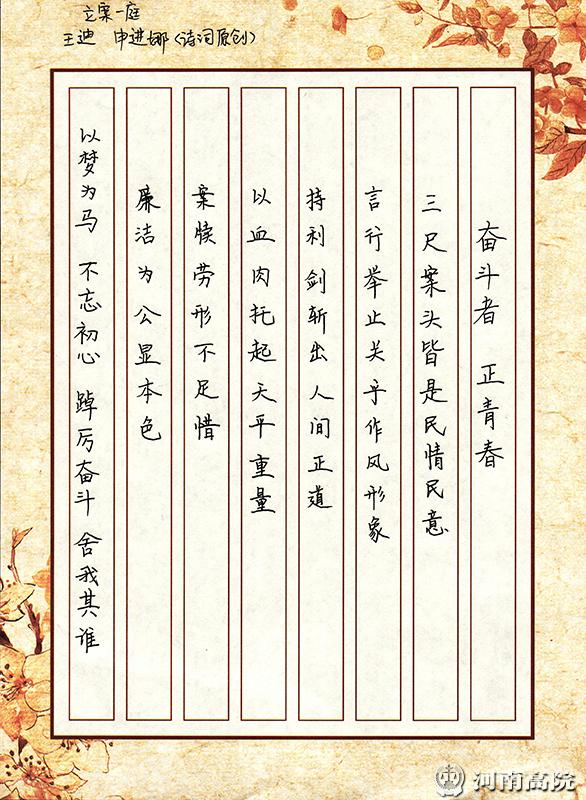 立案一庭
王迪 申进娜(诗词原创)
奋斗者 正青春
三尺案头皆是民情民意
言行举止关乎作风形象
持利剑斩出人间正道
以血肉托起天平重量
案牍劳形不足惜
廉洁为公显本色
以梦为马 不忘初心 踔厉奋斗 舍我其谁
河南高院